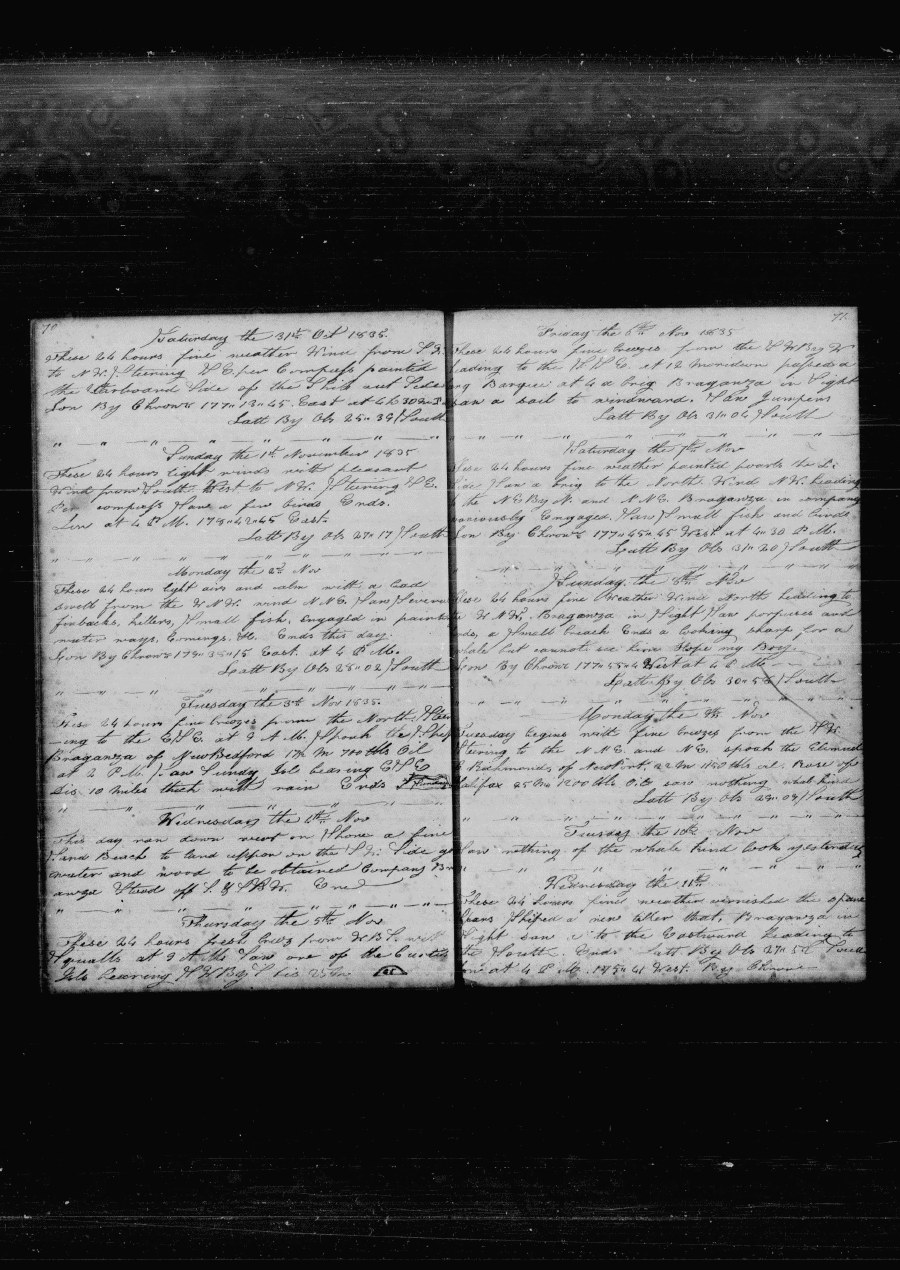 70
Saturday the 31st Oct 1835.
These 24 hours fine weather Wind from
to N.W. Steering S.E. per Compass painted
the Larboard Side of the Ship out Side
Lon By Chronr 177"13"45 East at 4h 30m
Latt By Obs 25"39 South
Sunday the 1st November 1835
These 24 hours light winds with pleasant
Wind from South West to N.W. Steering S.E.
Per compass Saw a few birds Ends.
Lon at 4 P.M. 178"42"45 East.
Latt By Obs 27"17 South
Monday the 2d Nov
These 24 hours light airs and calm with a bad
swell from the W.N.W. wind N.N.E. Saw Several
finbacks, killers, Small fish. Engaged in painting
water ways, Comings, &c. Ends this day.
Lon By Chronr 178"38"15 East. at 4 P.M.
Latt By Obs 28"02 South
Tuesday the 3d Nov 1835.
This 24 hours fine breezes from the North Steer
ing to the E.S.E. at 9 A.M. Spoak the Ship
Braganza of New Bedford 17½ m 700 bbls Oil
at 2 P.M. Saw Sunday Isl bearing E.S.E
Dis. 10 miles thick with rain Ends
Wednesday the 4th Nov
This day ran down next in Shore a fine
Sand Beach to land uppon on the S.W. Side
water and wood to be obtained Company
anza Stood off S. Ened
Thursday the 5th Nov
These 24 hours fresh breez from
Squalls at 9 A.M. Saw one of the Curtis
Isls bearing
71
Friday the 6th Nov 1835
These 24 hours fine breezes from the
leading to the at 12 meridian passed a
Barque at 4 a brig Braganza in Sight
saw a sail to windward. Saw Jumpers
Latt By Obs 31"04 South
Saturday the 7th Nov
These 24 hours fine weather painted boarts the L.
Side Saw a brig to the North Wind N.W. heading
the N.E. By N. and N.N.E. Braganza in company
variously Engaged. Saw Small fish and birds
Lon By Chronr 177"45"45 West at 4"30 P.M.
Latt By Obs 31"20 South
Sunday the 8th Nov
These 24 hours fine Weather Wind North heading to
W.N.W. Braganza in Sight Saw porpuses and
birds, a Small breach Ends a looking sharp for a
whale but cannot see him Hope my Boy.
Lon By Chronr 177"55"4 West at 4 P.M.
Latt By Obs 30"58 South
Monday the 9th Nov
Tuesday begins with fine breezes from the
Steering to the N.N.E. and N.E. spoak the
Richmond, of NewPort. 22 m 1150 bbls oil. Rose of
Halifax 25 m 1200 bbls Oil saw nothing whale kind
Latt By Obs 29"09 South
Tuesday the 10th Nov
Saw nothing of the whale kind looks yesterday
Wednesday the 11th
These 24 hours fine weather varnished the spare
Spars Shiped a new tiller that, Braganza in
Sight saw a to the Eastward heading to
the South. Ends. Latt By Obs 27"54 South
Lon at 4 P.M. 175"41 West. By Chronr